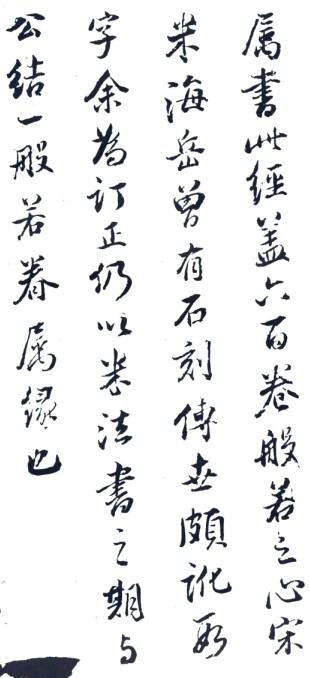 属書此經蓋六百卷般若之心宋
米海岳曾有石刻傳世頗訛數
字余為訂正仍以米法書之期與
公結一般若眷属緣也